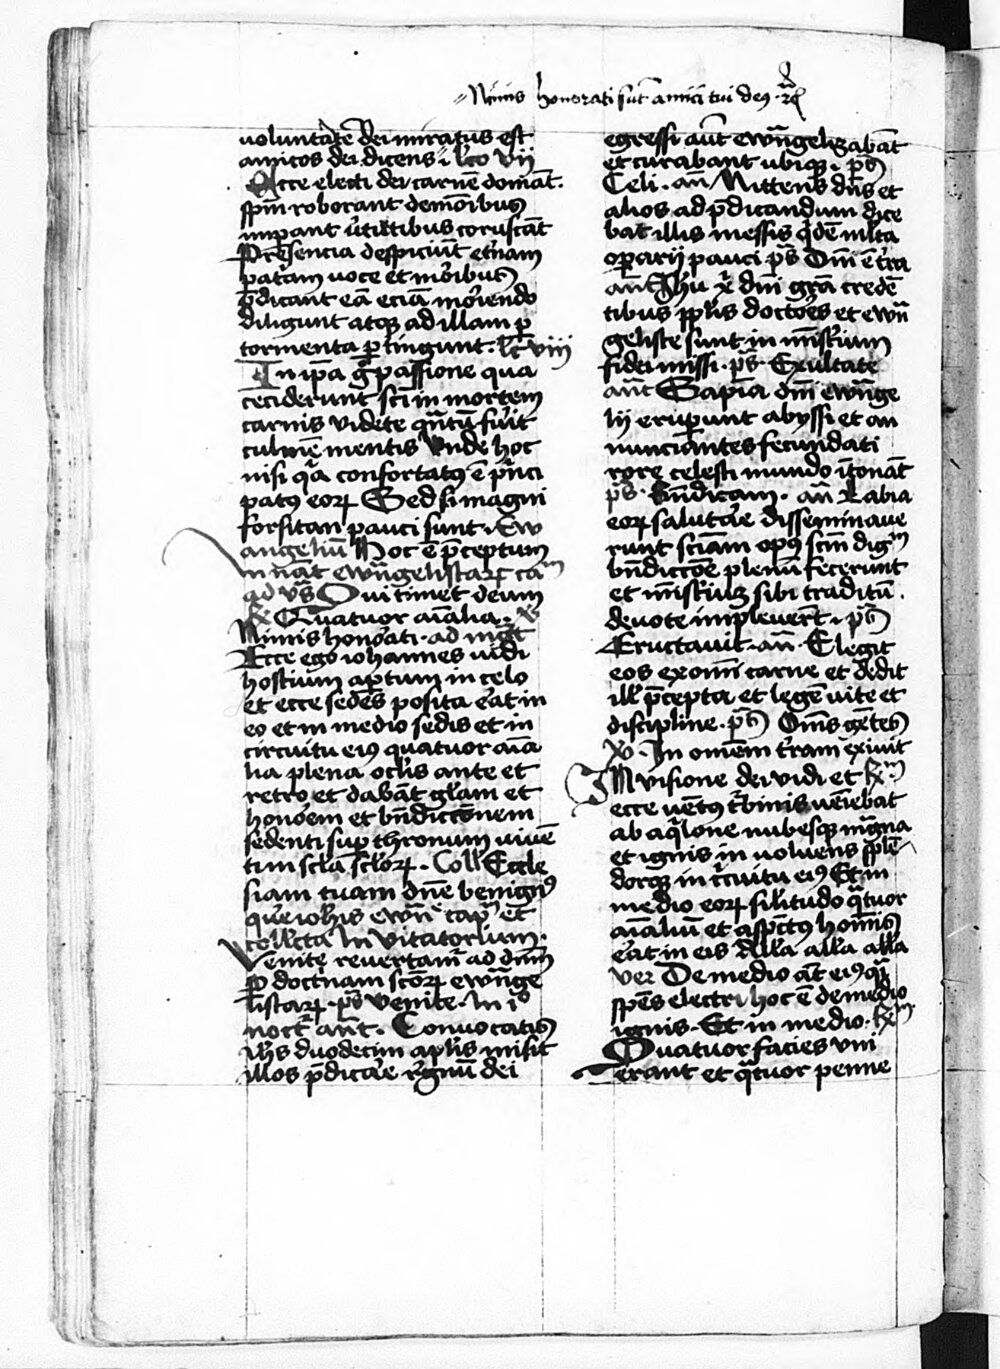 Nimis honorati sūt amici tui deꝰ ꝛc̄
voluntate Dei miratus est
amicos dei dicens lc̄o vij
Ecce electi dei carnē domāt.
sp̄m roborant demōibus
imp̄ant v̄tutibus coruscāt
Presencia despiciūt et̄nam
patām voce et mōibus
p̄dicant eā eciā moriendo
diligunt atqꝫ ad illam ꝑ
tormenta ꝑtingunt. lc̄ viij
In ip̄a gͦ passione qua
ceciderunt sc̄i in mortem
carnis videte qūtū fūit
culmē mentis Vnde hoc
nisi qͣ confortatꝰ ē p̄nci
patꝰ eoꝝ Sed si magni
forsitan pauci sunt. Ew
angeliū Hoc ē p̄ceptum
ad vs̄ Qui timet deum
Quatuor aīalia. v̄
Nimis honoati. ad mgt̄
Ecce ego iohannes vidi
hostium aꝑtum in celo
et ecce sedes posita eāt in
eo et in medio sedis et in
circuitu eiꝰ quatuor aīa
lia plena oclīs ante et
retro et dabāt gl̄am et
honōem et bn̄dicc̄onem
sedenti suꝑ thronum vivē
ti in scl̄a scl̄oꝝ. Coll̄ Eccle
siam tuam dn̄e benignꝰ
collecta Invitatorium.
Venite revertam̄ ad dn̄m
ꝑ doct̄nam sc̄oꝝ ewn̄ge
listaꝝ. ps̄ Venite. In iͦ
noct̄ an̄t. Convocatis
ih̄s duodecim apl̄is misit
illos p̄dicāe regnū dei
egressi aūt ewn̄gelisabāt
et curabant ubiqꝫ. ps̄
Celi. an̄ Mittens dn̄s et
alios ad p̄dicandum dice
bat illis messis q̄dē ml̄ta
oꝑarij pauci ps̄ Dn̄i ē t̄ra
an̄t Ih̄u xp̄i dn̄i grā credē
tibus ppl̄is doctōes et ewn̄
geliste sunt in mīst̄ium
fidei missi. ps̄ Exultate
an̄t Sapīa dn̄i ewn̄ge
lij eruꝑunt abyssi et an
nunciantes fecundati
rore celesti mundo ītonāt
ps̄ Bn̄dicam. an̄ Labia
eoꝝ salutāe disseminave
runt sciam opꝰ scm̄ digͫ
bn̄dicc̄oe plenū fecerunt
et mīst̄iuꝫ sibi traditū.
devote impleverūt. ps̄
Eructavit. an̄ Elegit
eos ex omī carne et dedit
ill̄ p̄cepta et legē vite et
discipline. ps̄ Om̄s gētes
v̄ In omēm t̄ram exivit
In visione dei vidi et ℟ͫ
ecce vētꝰ t̄binis vēiebat
ab aq̄lone nubesqꝫ mgna
et ignis in volvens sple̅
dorqꝫ in c̄cuitu eiꝰ Et in
medio eoꝝ sil̄itudo q̄tuor
aīaliū et aspc̄tꝰ homīs
eāt in eis all̄a all̄a all̄a
ver̄ De medio āt eiꝰ qͣ
spēs electri hoc ē de medio
ignis. Et in medio. ℟ͫ
Quatuor facies vni
erant et q̄tuor penne